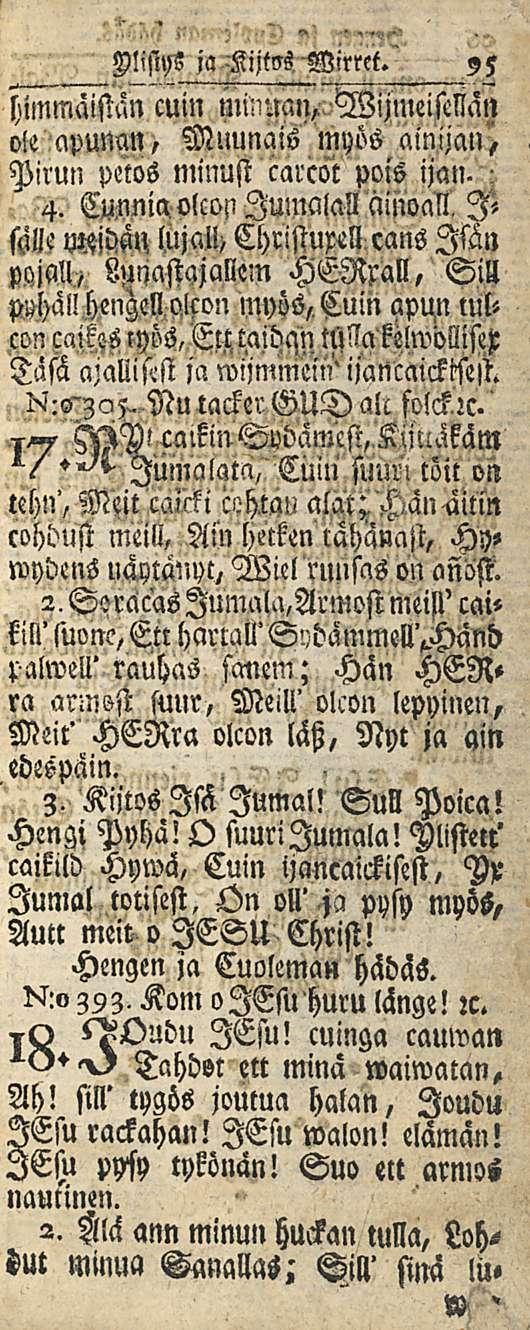 Ylistys ja Kijtos Wirret. 95
himmäistän cuin minuan, Wijmeisellän
ole apunan, Muunais myös ainijan,
Pirun petos minust carcot pois ijan.
4. Cunnia olcon Jumalall ainoall, J-
sälle meidän lujall, Christuxell cans Isän
pojall, Lunastajallem HERrall, Sill
pyhäll hengell olcon myös, Cuin apun tul-
con caikes työs, Ett taidan tulla kelwollisex
Täsä ajallisest ja wijmmein ijancaickisest.
N:o 305. Nu tacker GUD alt folck ꝛc.
17. NYt caikin Sydämest, Kijttäkäm
Jumalata, Cuin suuri töit on
tehn', Meit caicki cohtan alat; Hän äitin
cohdust meill, Ain hetken tähänast, Hy-
wydens näytänyt, Wiel runsas on añost.
2. Seracas Jumala, Armost meill' cai-
kill' suone, Ett hartall' Sydämmell', Händ
palwell' rauhas sanem; Hän HER-
ra armost suur, Meill' olcon leppinen,
Meit' HERra olcon läß, Nyt ja ain
edespäin.
3. Kijtos Isä Jumal! Sull Poica!
Hengi Pyhä! O suuri Jumala! Ylistett'
caikild Hywä, Cuin ijancaickisest, Yx
Jumal totisest, On oll' ja pysy myös,
Autt meit o JESU Christ!
Hengen ja Cuoleman hädäs.
N:o 393. Kom o JEsu huru länge! ꝛc.
18. JOudu JEsu! cuinga cauwan
Tahdot ett minä waiwatan,
Ah! sill' tygös joutua halan, Joudu
JEsu rackahan! JEsu walon! elämän!
JEsu pysy tykönän! Suo ett armos
nautinen.
2. Älä ann minun huckan tulla, Loh-
dut minua Sanallas; Sill' sinä lu-